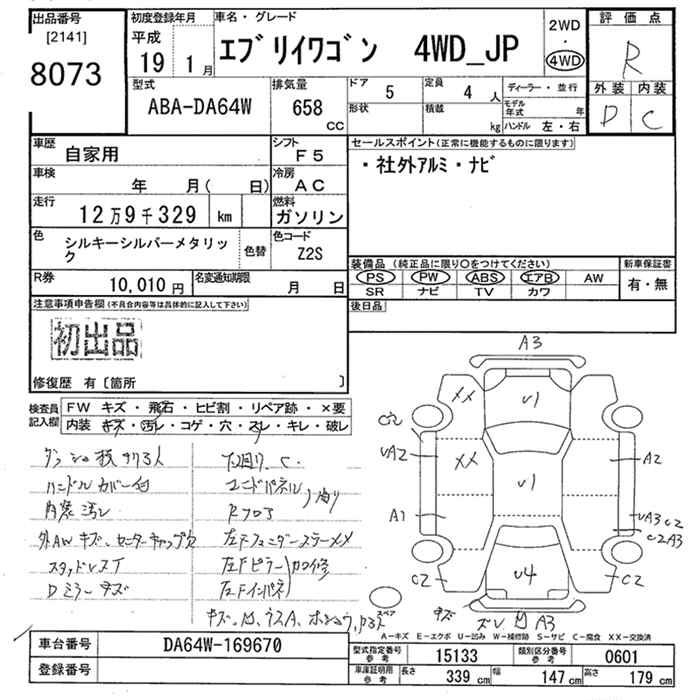 出品番号
[2141]
8073
初度登録年月
平成
19 1月
車名・グレード
エブリイワゴン 4WD_JP
2WD
・
4WD
評価点
R
外装 内装
D C
型式
ABA-DA64W
排気量
658
cc
ドア 5
形状
定員 4 人
積載 kg
ディーラー・並行
モデル年式 年
ハンドル 左・右
車歴 自家用
シフト F5
車検 年 月( 日)
冷房 AC
走行 12万9千329 km
燃料 ガソリン
色 シルキーシルバーメタリック
色替
色コード Z2S
R券 10,010円
名変通知期限 月 日
セールスポイント(正常に機能するものに限ります)
・社外アルミ・ナビ
装備品(純正品に限り○をつけてください)
PS PW ABS エアB AW
SR ナビ TV カワ
新車保証書
有・無
後日品
注意事項申告欄(不具合内容等は具体的に記入して下さい)
初出品
修復歴 有[箇所 ]
検査員記入欄
FW キズ・飛石・ヒビ割・リペア跡・×要
内装 キズ・汚レ・コゲ・穴・スレ・キレ・破レ
ハンドルカバー付
内装汚レ
外AW キズ、センターキャップ欠
スタッドレス
Dミラーキズ
下廻り、C
エンドパネル
Rフロア
左Fピラー
左Fインパネ
A3
XX
U1
XX
U1
U4
UA2
A1
C2
A2
UA3 C2
C2A3
C2
キズ
A3
スペア
A-キズ E-エクボ U-凹み W-補修跡 S-サビ C-腐食 XX-交換済
車台番号 DA64W-169670
登録番号
型式指定番号 参考 15133
類別区分番号 参考 0601
車庫証明用 参考 長さ 339 cm 幅 147 cm 高さ 179 cm